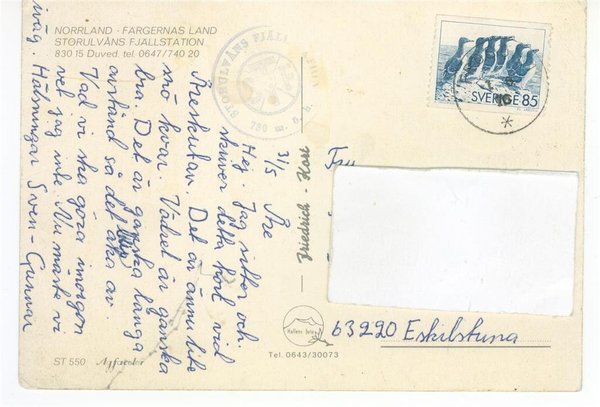 NORRLAND - FÄRGERNAS LAND
STORULVÅNS FJÄLLSTATION
830 15 Duved. tel. 0647/740 20
STORULVÅNS FJÄLLSTATION
730 m. ö. h.
SVERIGE 85
3/5 Åre
Hej. Jag sitter och
skriver detta kort vid
Åreskutan. Det är ännu lite
snö kvar. Vädret är ganska
bra. Det är ganska långa
avstånd så det blir åka av.
Vad vi ska göra imorgon
vet jag inte. Nu måste vi
iväg. Hälsningar Sven-Gunnar
Friedrich - Kort
Fru
63220 Eskilstuna
Hallens foto
Tel. 0643/30073
ST 550